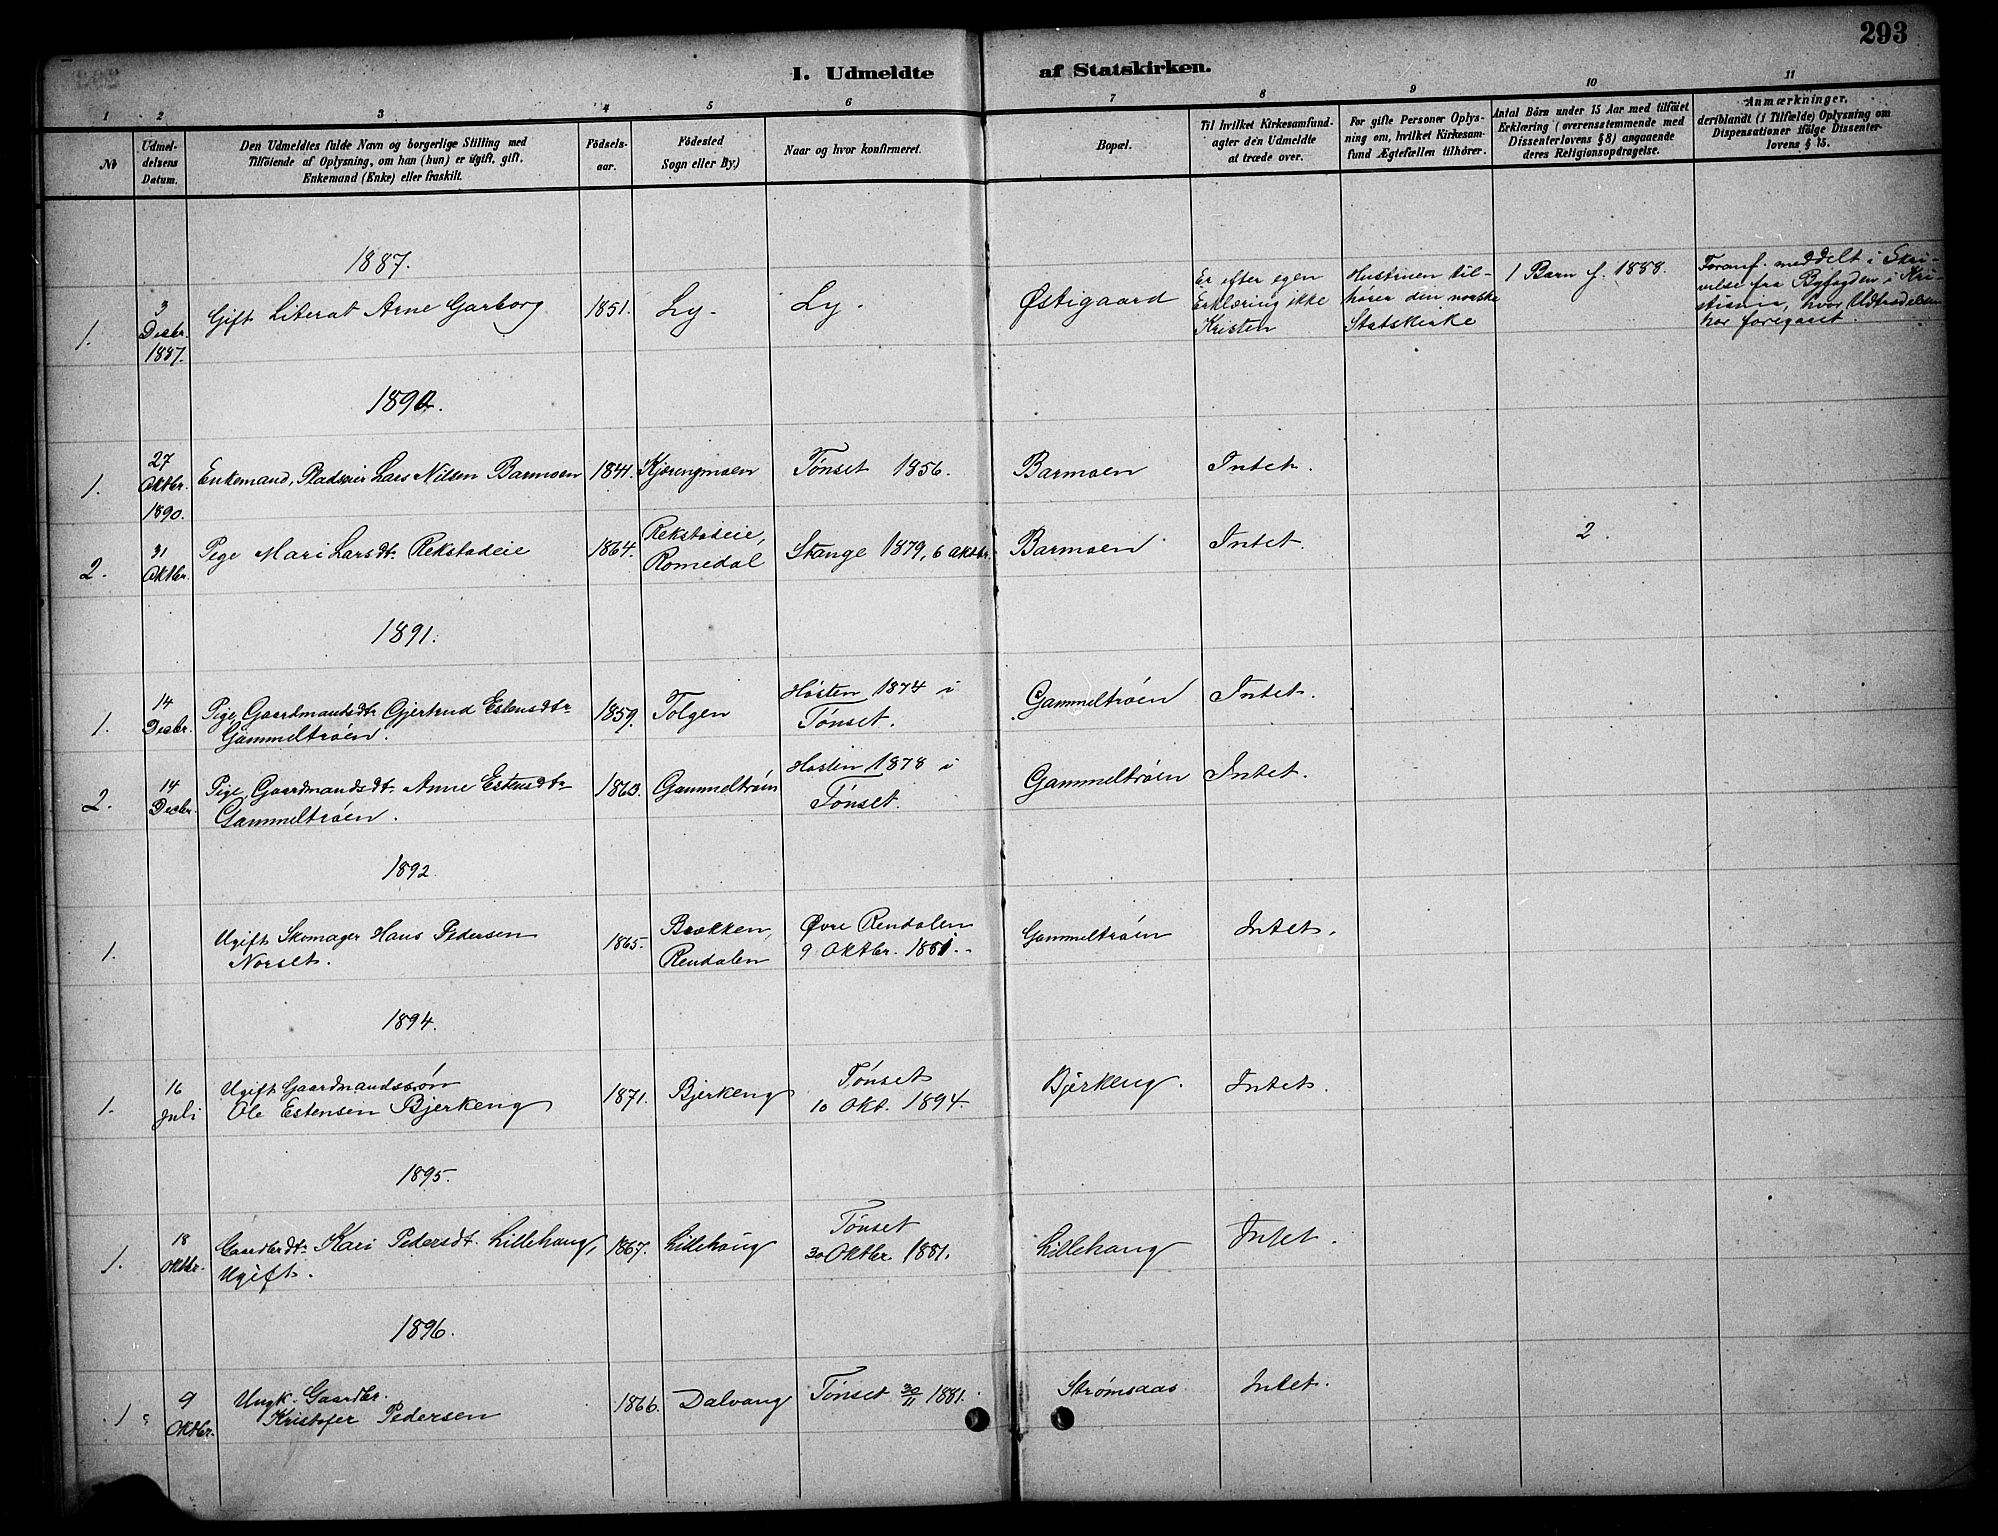 293
I. Udmeldte af Statskirken.
1 2 3 4 5 6 7 8 9 10 11
№
Udmeldelsens Datum.
Den Udmeldtes fulde Navn og borgerlige Stilling med
Tilföiende af Oplysning, om han (hun) er ugift, gift,
Enkemand (Enke) eller fraskilt.
Födselsaar.
Födested
Sogn eller By)
Naar og hvor konfirmeret.
Bopæl.
Til hvilket Kirkesamfund
agter den Udmeldte
at træde over.
For gifte Personer Oplys-
ning om, hvilket Kirkesam-
fund Ægtefællen tilhörer.
Antal Börn under 15 Aar med tilföiet
Erklæring (overensstemmende med
Dissenterlovens § 8) angaaende
deres Religionsopdragelse.
Anmærkninger,
deriblandt (i Tilfælde) Oplysning om
Dispensationer ifölge Dissenter-
lovens § 15.
1887.
1.
3
Decbr.
1887.
Gift Literat Arne Garborg
1851.
Ly.
Ly.
Østigaard
Er efter egen
Erklæring ikke
Kristen
Hustruen til-
hører den norske
Statskirke
1 Barn f. 1888.
Foranf. meddelt i Skri-
velse fra Byfogden i Kri-
stiania, hvor Udtrædelsen
har foregaaet.
1890.
1.
27
Oktbr.
1890.
Enkemand, Pladseier Lars Nilsen Barmoen
1841.
Kjærengmoen
Tønset 1856.
Barmoen
Intet.
2.
31
Oktbr.
Pige Mari Larsdtr. Rekstadeie
1864.
Rekstadeie,
Romedal
Stange 1879, 6 Oktbr.
Barmoen
Intet.
2.
1891.
1.
14
Decbr.
Pige, Gaardmandsdtr. Gjertrud Estensdtr.
Gammeltrøen.
1859.
Tolgen
Høsten 1874 i
Tønset.
Gammeltrøen
Intet.
2.
14
Decbr.
Pige, Gaardmandsdtr. Anne Estensdtr.
Gammeltrøen.
1863.
Gammeltrøen
Høsten 1878 i
Tønset.
Gammeltrøen
Intet.
1892.
1.
Ugift Skomager Hans Pedersen
Norset.
1865.
Brækken,
Rendalen
Øvre Rendalen
9 Oktbr. 1881.
Gammeltrøen
Intet.
1894.
1.
16
Juli
Ugift Gaardmandssøn
Ole Estensen Bjerkeng
1871.
Bjerkeng
Tønset
10 Okt. 1894.
Bjerkeng.
Intet.
1895.
1.
18
Oktbr.
Gaardbrdtr. Kari Pedersdt. Lillehaug,
Ugift.
1867.
Lillehaug
Tønset
30 Oktbr. 1881.
Lillehaug
Intet.
1896.
1.
9
Oktbr.
Ungk. Gaardbr.
Kristofer Pedersen
1866.
Dalvang
Tønset 30/11 1881.
Strømsaas
Intet.